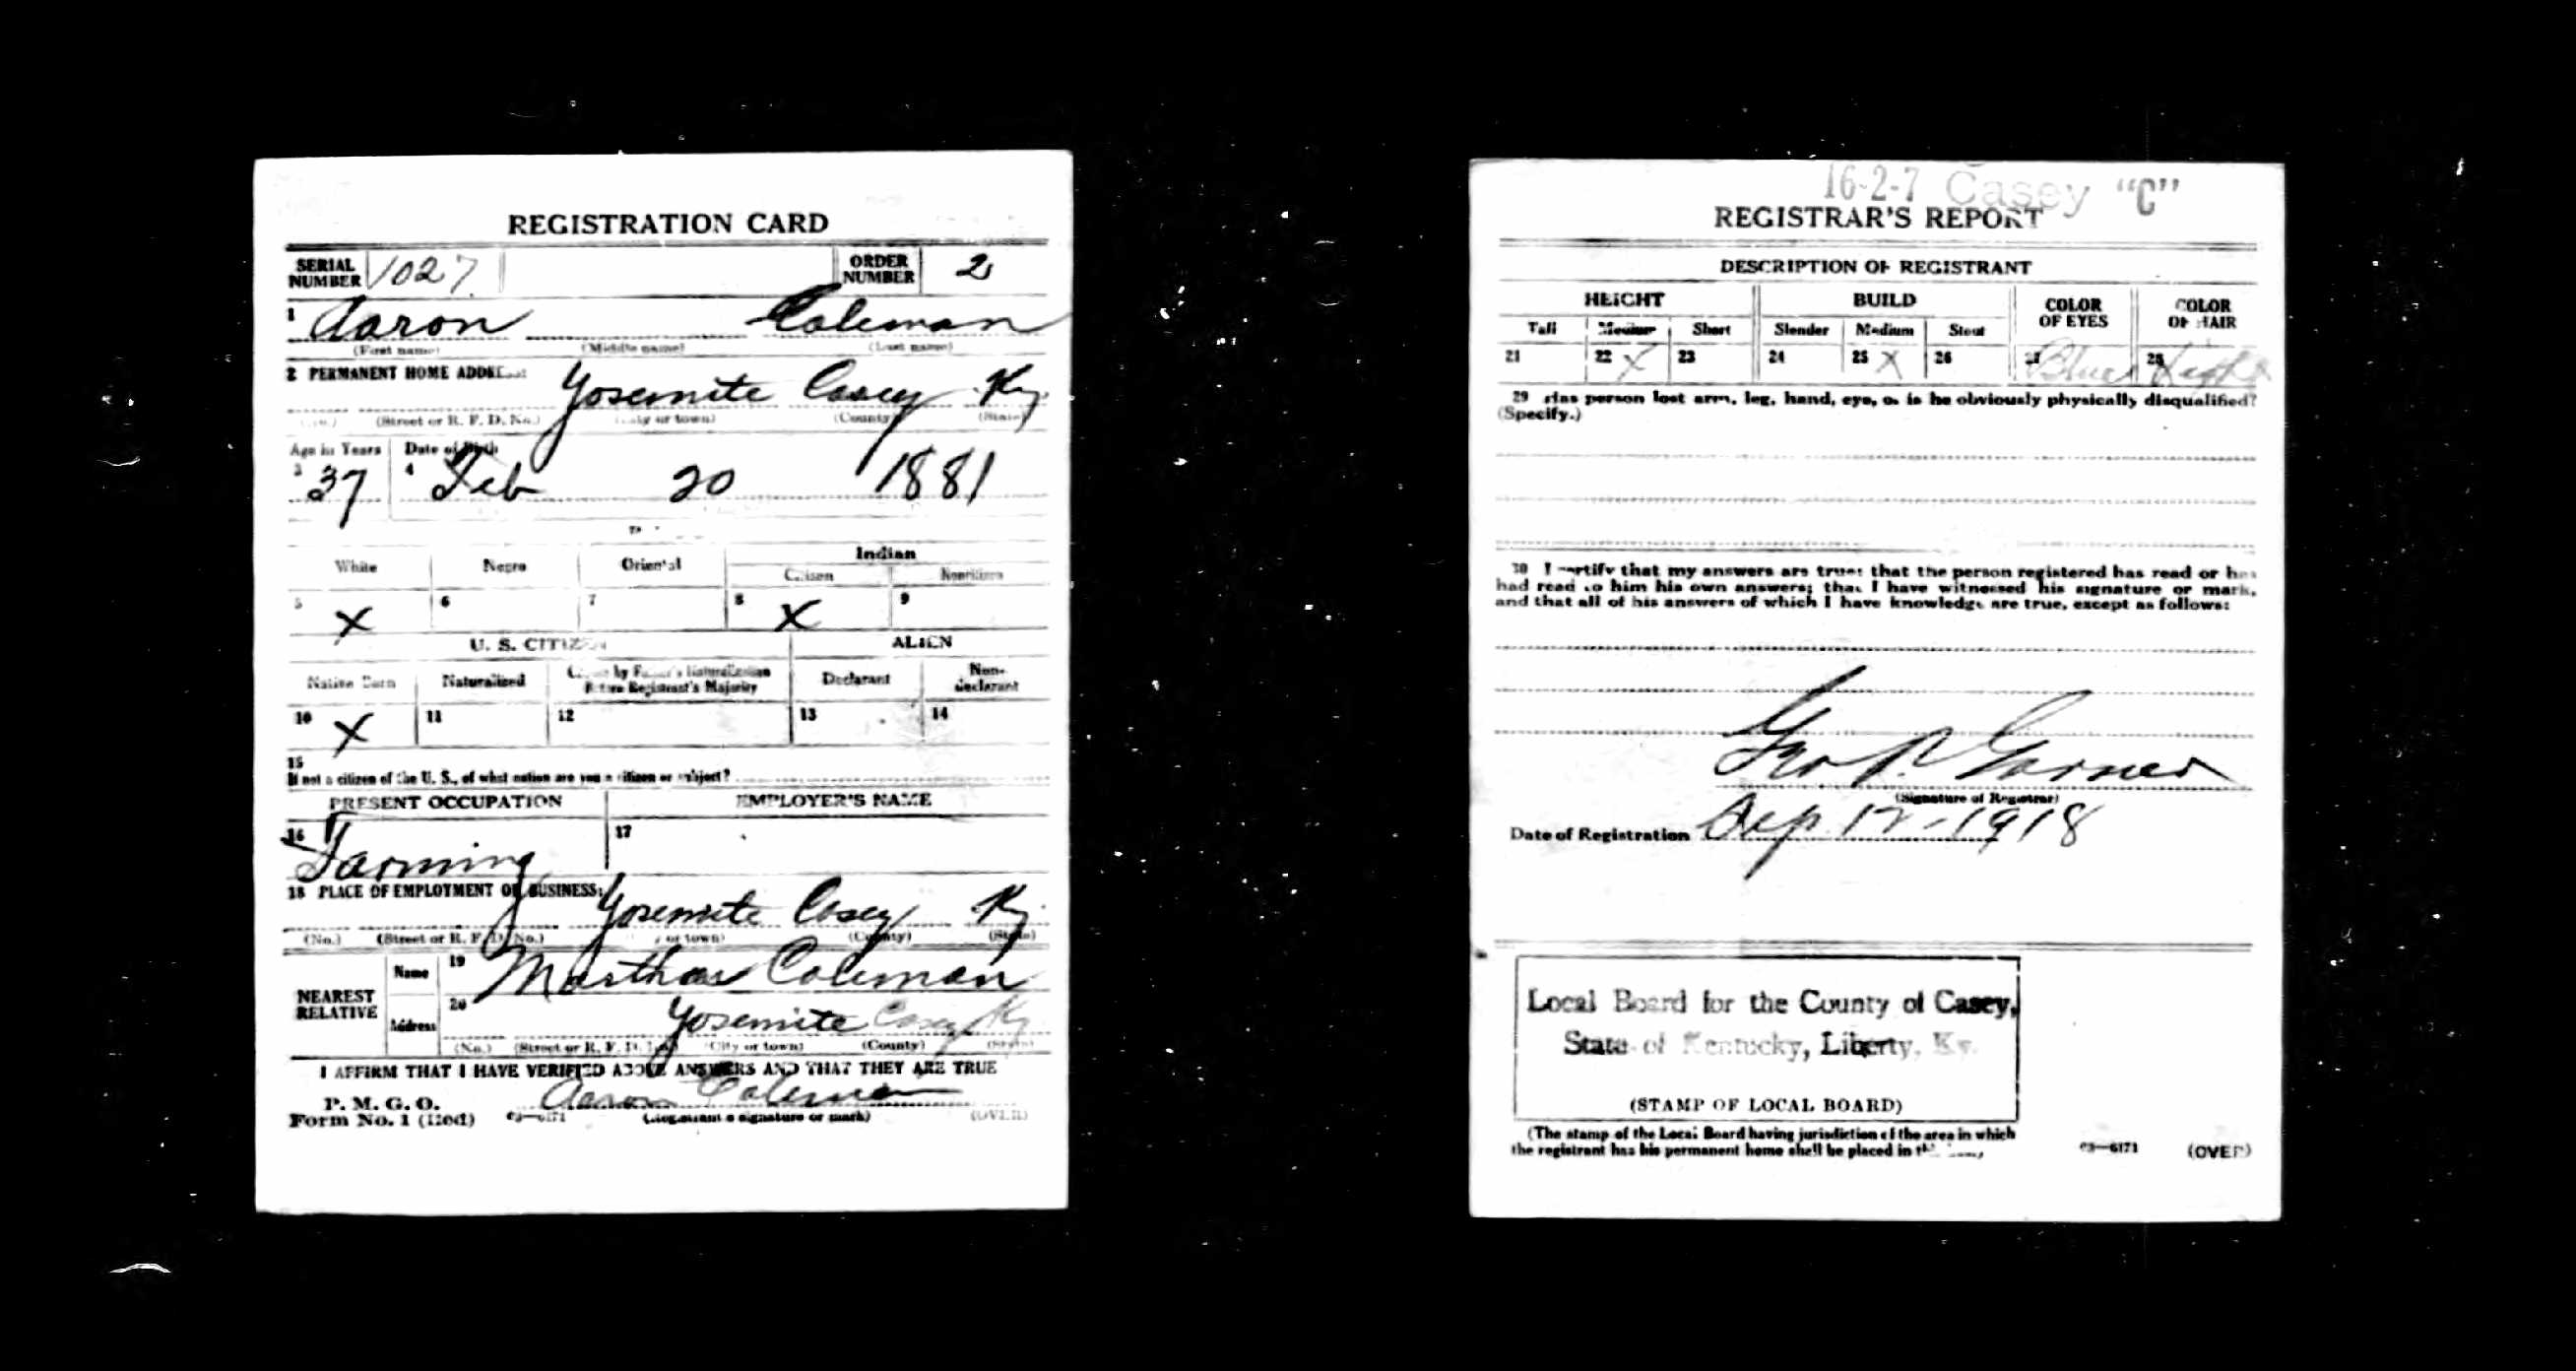 REGISTRATION CARD
SERIAL NUMBER 1027 ORDER NUMBER 2
1 Aaron Coleman
(First name) (Middle name) (Last name)
2 PERMANENT HOME ADDRESS: Yosemite Casey Ky
(No.) (Street or R. F. D. No.) (City or town) (County) (State)
Age in Years Date of Birth
3 37 4 Feb 20 1881
Indian
White Negro Oriental Citizen Noncitizen
5 X 6 7 8 X 9
U. S. CITIZEN ALIEN
Native Born Naturalized Citizen by Father's Naturalization Before Registrant's Majority Declarant Non-declarant
10 X 11 12 13 14
15
If not a citizen of the U. S., of what nation are you a citizen or subject?
PRESENT OCCUPATION EMPLOYER'S NAME
16 Farming 17
18 PLACE OF EMPLOYMENT OR BUSINESS: Yosemite Casey Ky
(No.) (Street or R. F. D. No.) (City or town) (County) (State)
NEAREST RELATIVE Name 19 Martha Coleman
Address 20 Yosemite Casey Ky
(No.) (Street or R. F. D. No.) (City or town) (County) (State)
I AFFIRM THAT I HAVE VERIFIED ABOVE ANSWERS AND THAT THEY ARE TRUE
P. M. G. O.
Form No. 1 (Red) 03—6171 Aaron Coleman
(Registrant's signature or mark) (OVER)
16-2-7 Casey "C"
REGISTRAR'S REPORT
DESCRIPTION OF REGISTRANT
HEIGHT BUILD COLOR OF EYES COLOR OF HAIR
Tall Medium Short Slender Medium Stout
21 22 X 23 24 25 X 26 27 Blue 28 Light
29 Has person lost arm, leg, hand, eye, or is he obviously physically disqualified?
(Specify.)
30 I certify that my answers are true; that the person registered has read or has
had read to him his own answers; that I have witnessed his signature or mark,
and that all of his answers of which I have knowledge are true, except as follows:
Geo P. Garner
(Signature of Registrar)
Date of Registration Sep 12 - 1918
Local Board for the County of Casey,
State of Kentucky, Liberty, Ky.
(STAMP OF LOCAL BOARD)
(The stamp of the Local Board having jurisdiction of the area in which
the registrant has his permanent home shall be placed in this
03—6171 (OVER)